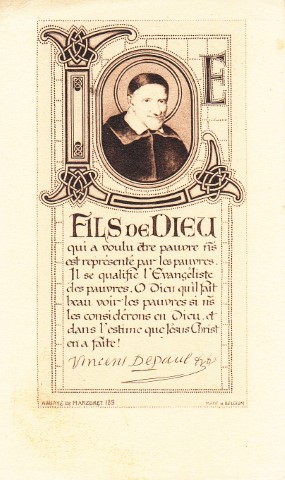 LE
FILS DE DIEU
qui a voulu être pauvre n̅s
est représenté par les pauvres.
Il se qualifie l'Evangéliste
des pauvres. O Dieu qu'il fait
beau voir les pauvres si n̅s
les considérons en Dieu, et
dans l'estime que Jésus Christ
en a faite!
Vincent Depaul
ABBAYE DE MAREDRET 189
MADE IN BELGIUM